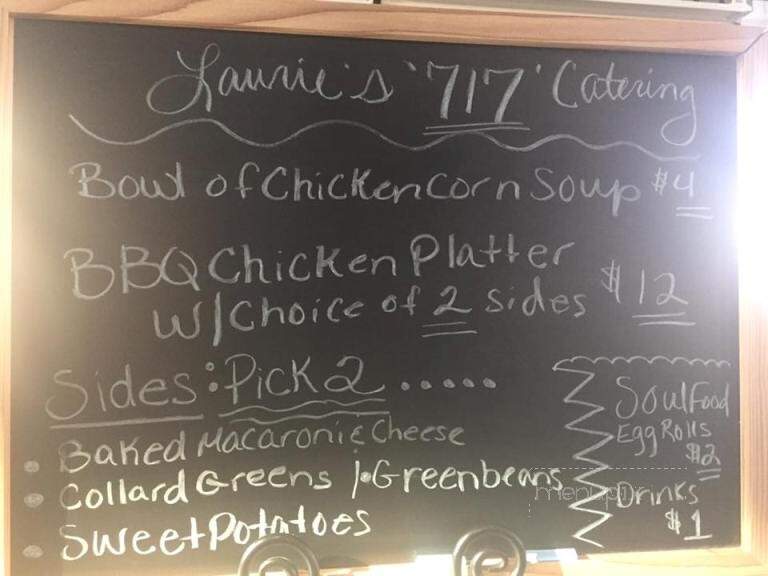 Laurie's '717' Catering
Bowl of Chicken Corn Soup $4
BBQ Chicken Platter
W/Choice of 2 sides $12
Sides: Pick 2 .....
• Baked Macaroni & Cheese
• Collard Greens / • Greenbeans
• Sweet Potatoes
Soul Food
Egg Rolls
$2
Drinks
$1
menupix